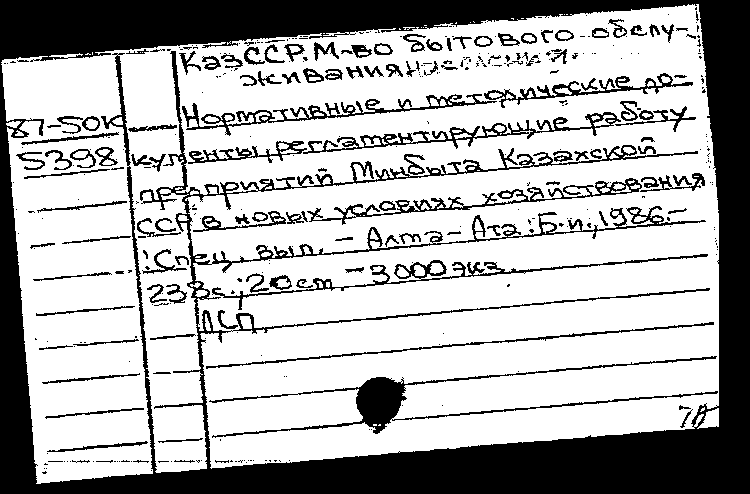 КазССР. М-во бытового обслу-
живания населения.
87-50К Нормативные и методические до-
5398 кументы, регламентирующие работу
предприятий Минбыта Казахской
ССР в новых условиях хозяйствования
: Спец. вып. - Алма-Ата : Б.и., 1986.-
238с.; 20 ст. - 3000 экз.
ДСП.